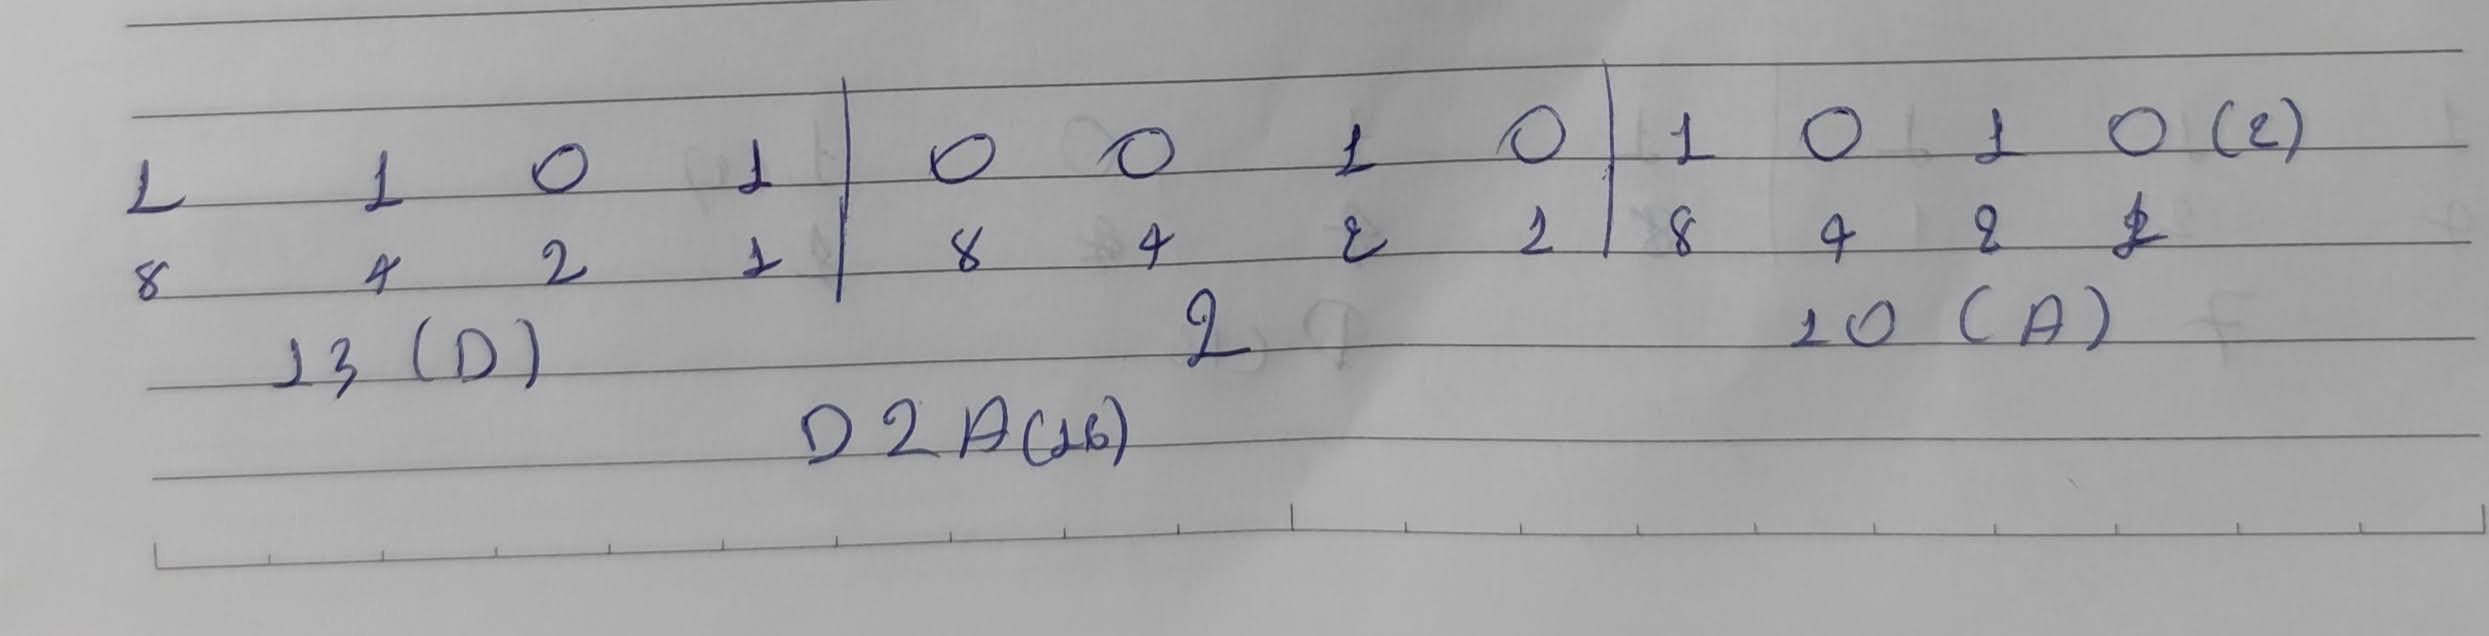 1 1 0 1 | 0 0 1 0 | 1 0 1 0 (2)
8 4 2 1 | 8 4 2 1 | 8 4 2 1
13 (D) 2 10 (A)
D2A(16)